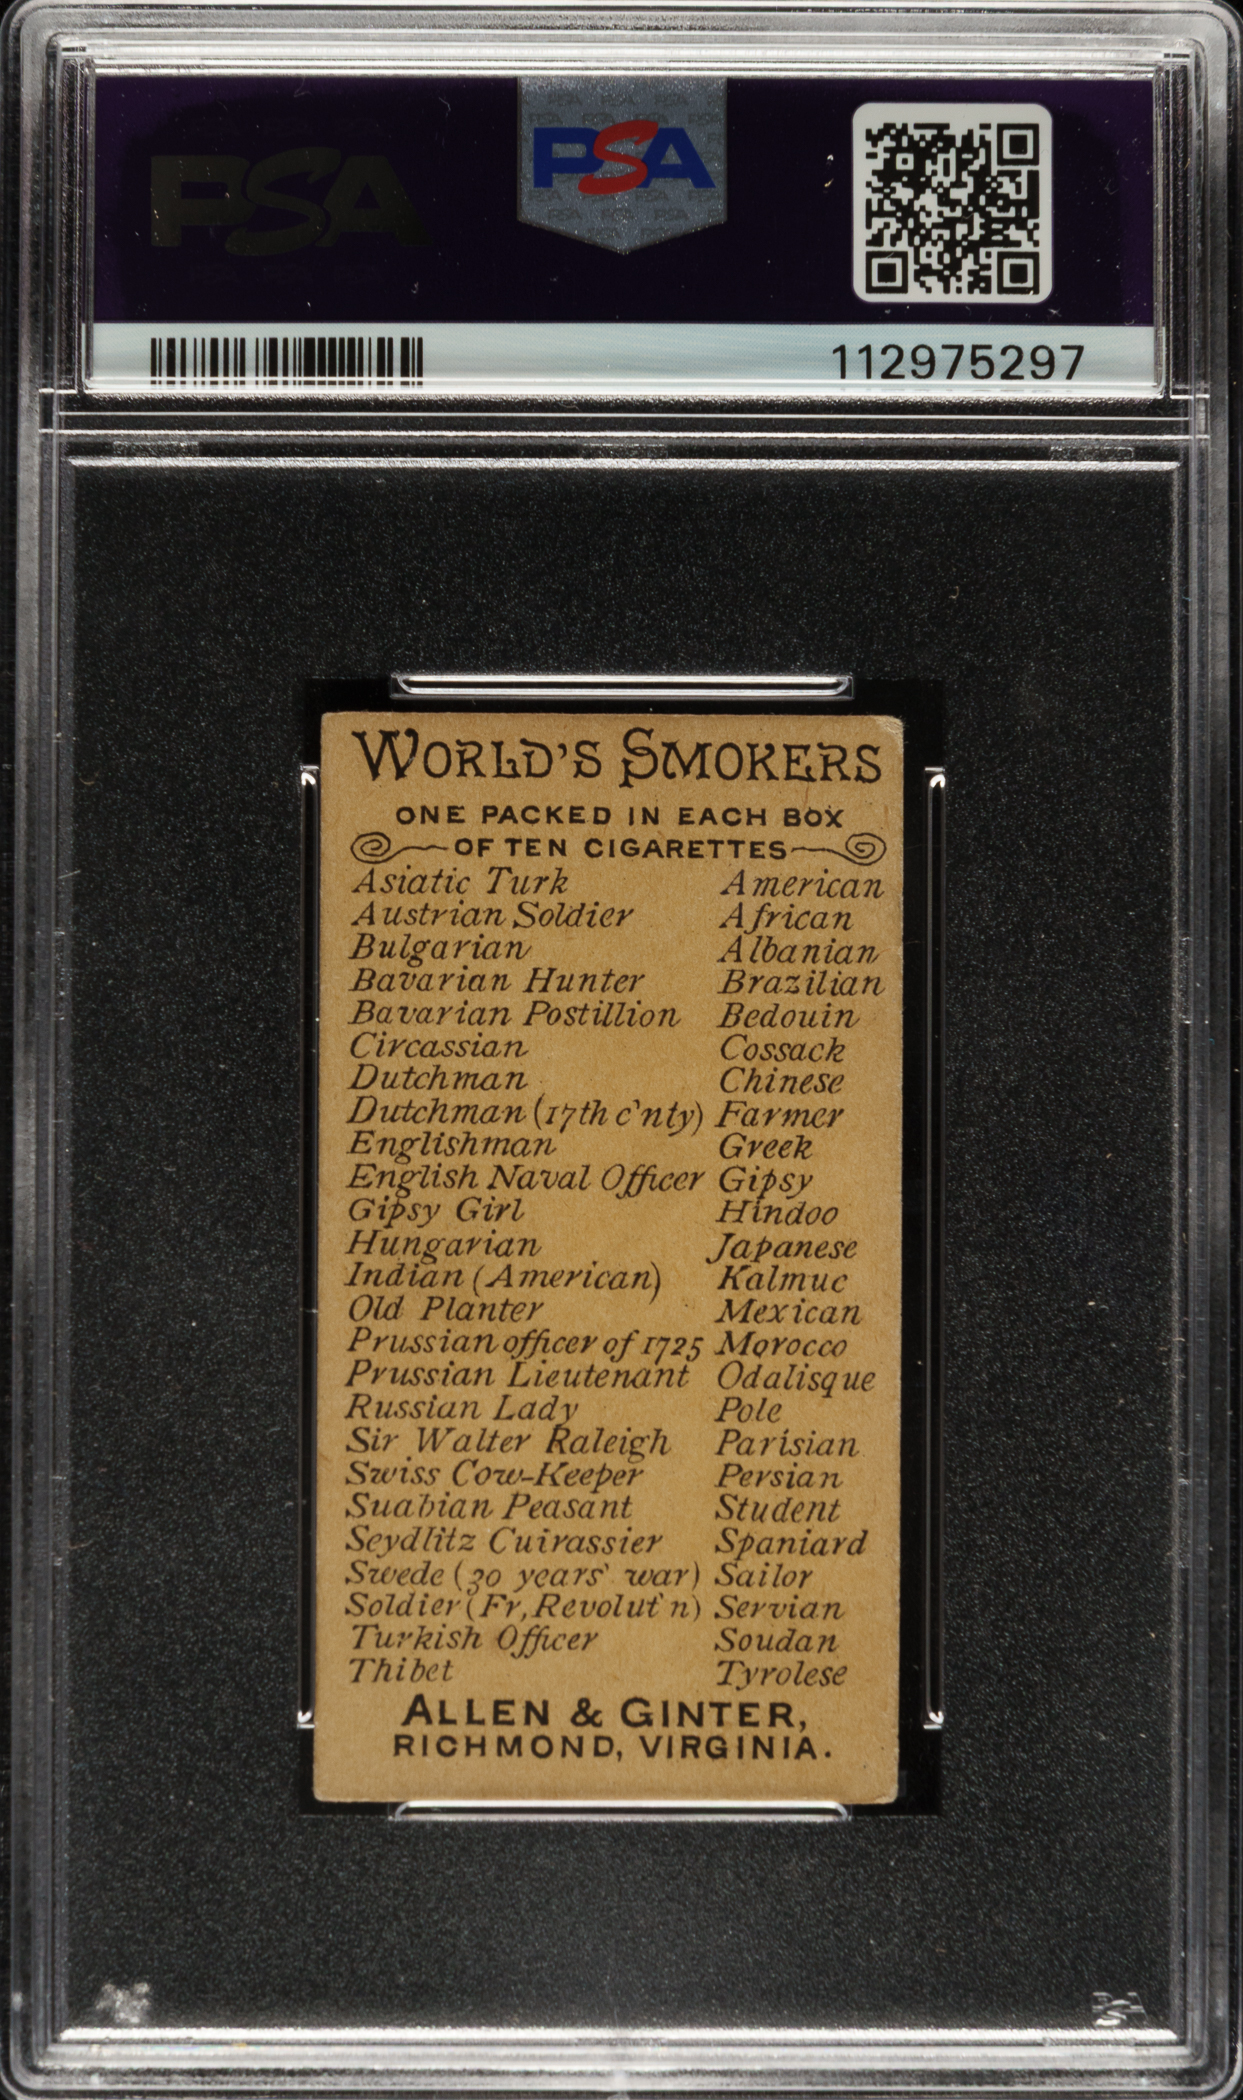 PSA
PSA
112975297
WORLD'S SMOKERS
ONE PACKED IN EACH BOX
OF TEN CIGARETTES
Asiatic Turk American
Austrian Soldier African
Bulgarian Albanian
Bavarian Hunter Brazilian
Bavarian Postillion Bedouin
Circassian Cossack
Dutchman Chinese
Dutchman (17th c'nty) Farmer
Englishman Greek
English Naval Officer Gipsy
Gipsy Girl Hindoo
Hungarian Japanese
Indian (American) Kalmuc
Old Planter Mexican
Prussian officer of 1725 Morocco
Prussian Lieutenant Odalisque
Russian Lady Pole
Sir Walter Raleigh Parisian
Swiss Cow-Keeper Persian
Suabian Peasant Student
Seydlitz Cuirassier Spaniard
Swede (30 years' war) Sailor
Soldier (Fr, Revolut'n) Servian
Turkish Officer Soudan
Thibet Tyrolese
ALLEN & GINTER,
RICHMOND, VIRGINIA.
PSA